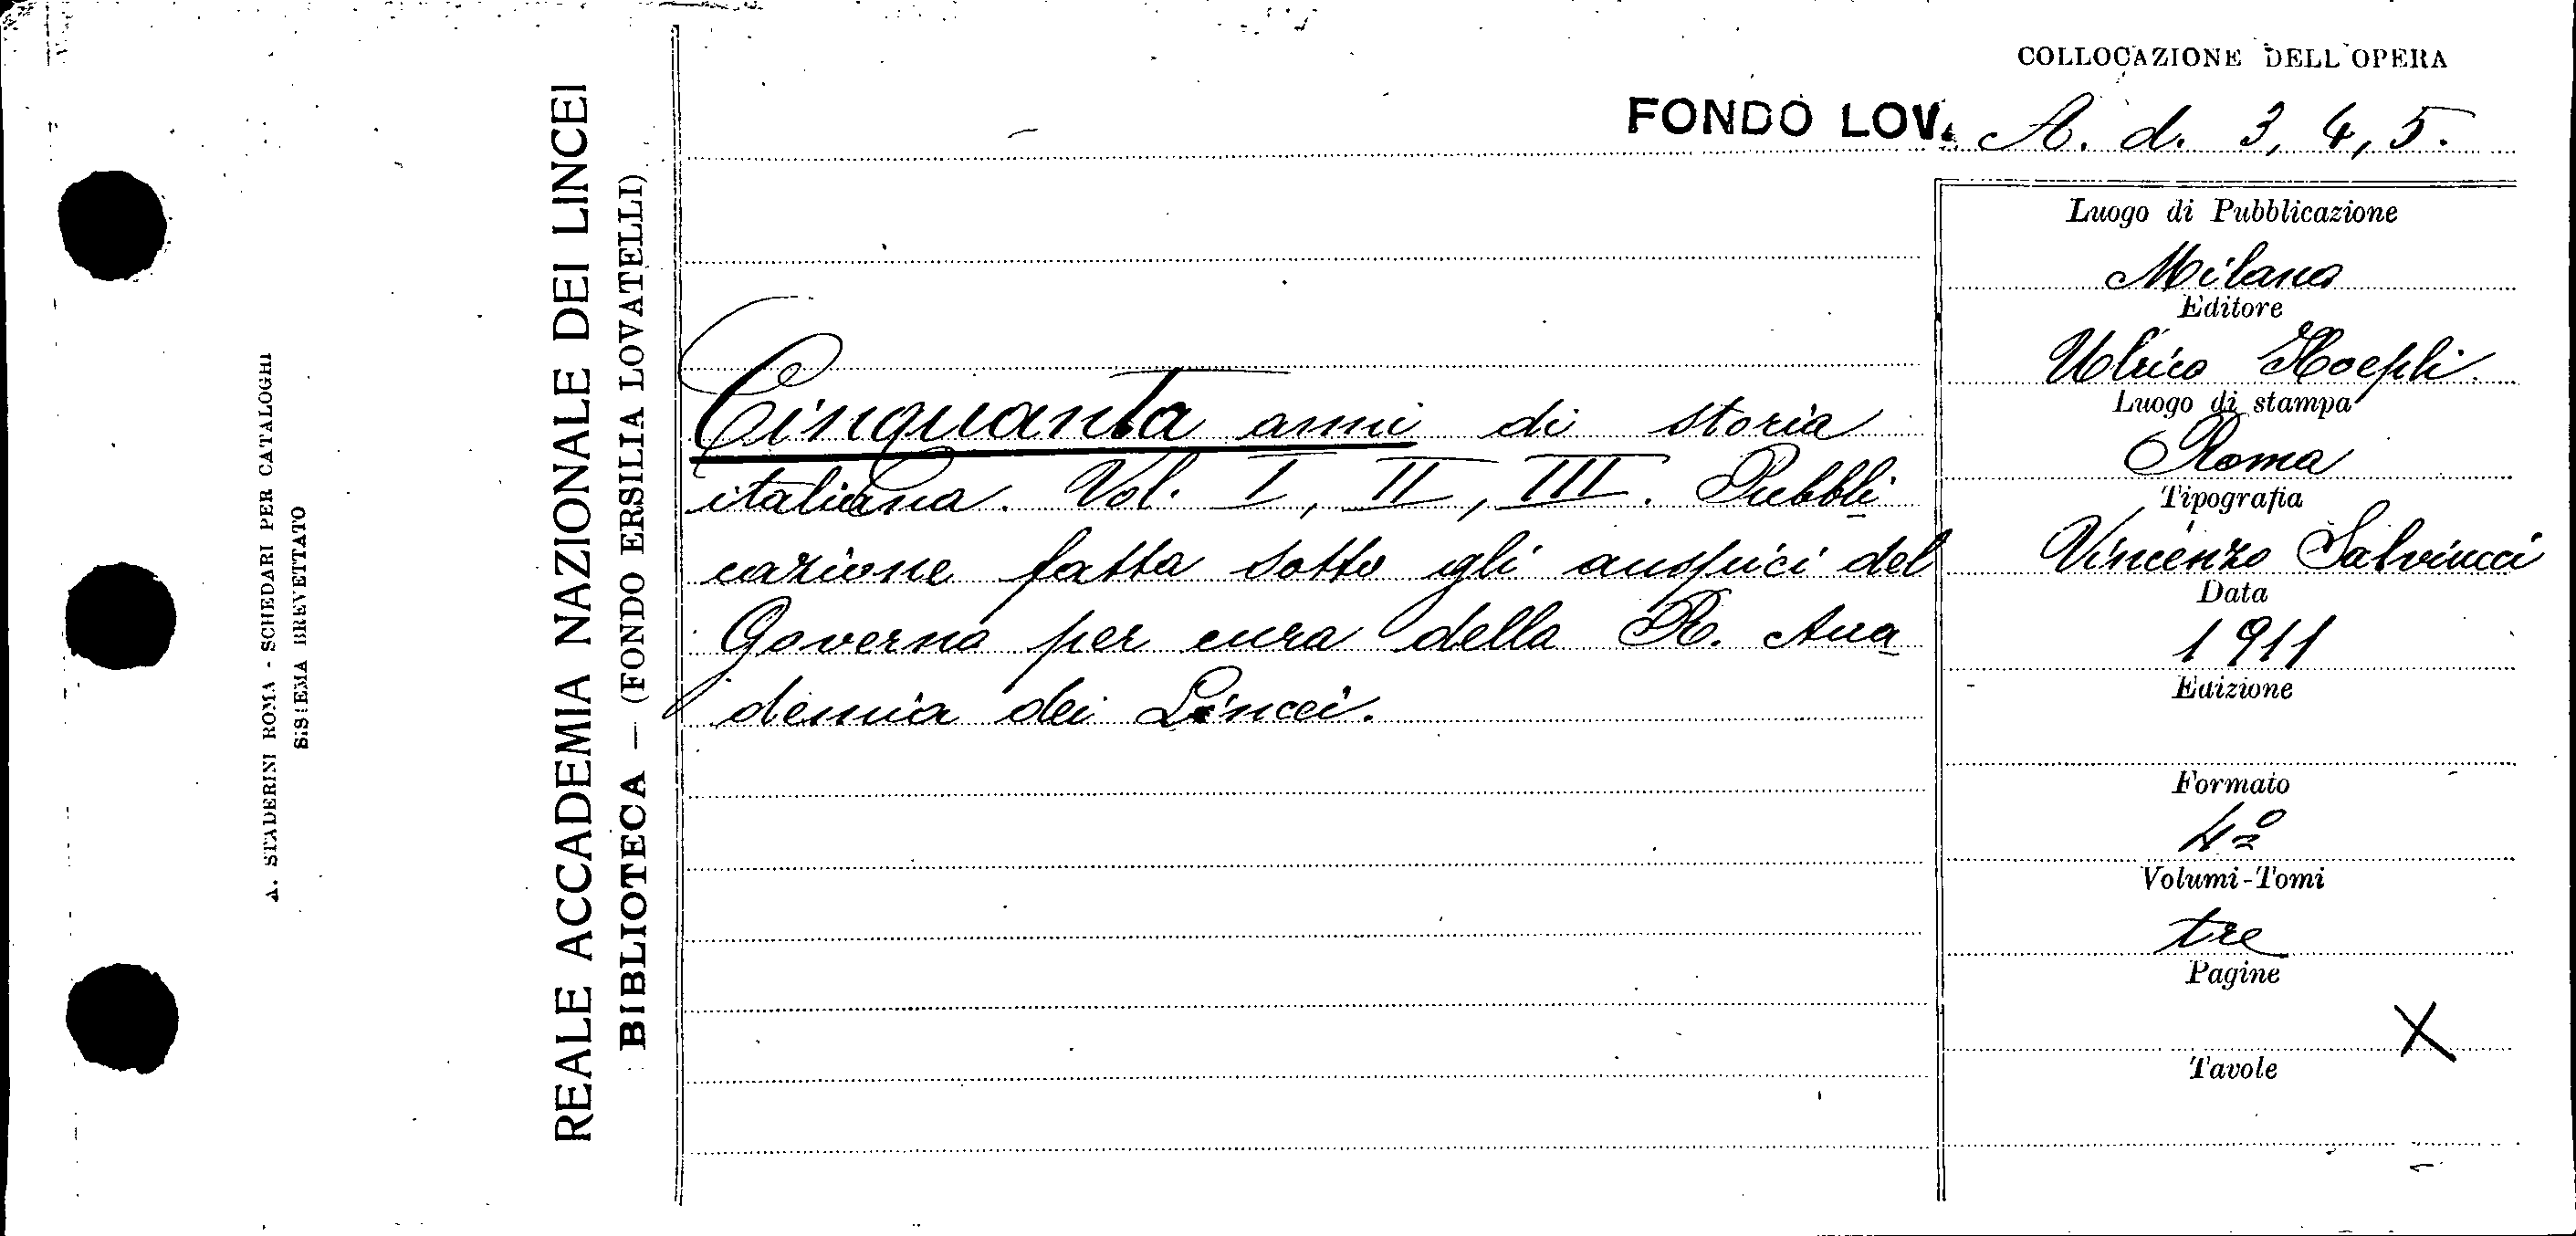 A. STADERINI ROMA - SCHEDARI PER CATALOGHI
SISTEMA BREVETTATO
REALE ACCADEMIA NAZIONALE DEI LINCEI
BIBLIOTECA — (FONDO ERSILIA LOVATELLI)
COLLOCAZIONE DELL'OPERA
FONDO LOV. A. d. 3, 4, 5.
Cinquanta anni di storia
italiana. Vol. I, II, III. Pubbli
cazione fatta sotto gli auspici del
Governo per cura della R. Acca
demia dei Lincei.
Luogo di Pubblicazione
Milano
Editore
Ulrico Hoepli
Luogo di stampa
Roma
Tipografia
Vincenzo Salviucci
Data
1911
Edizione
Formato
4º
Volumi-Tomi
tre
Pagine
X
Tavole